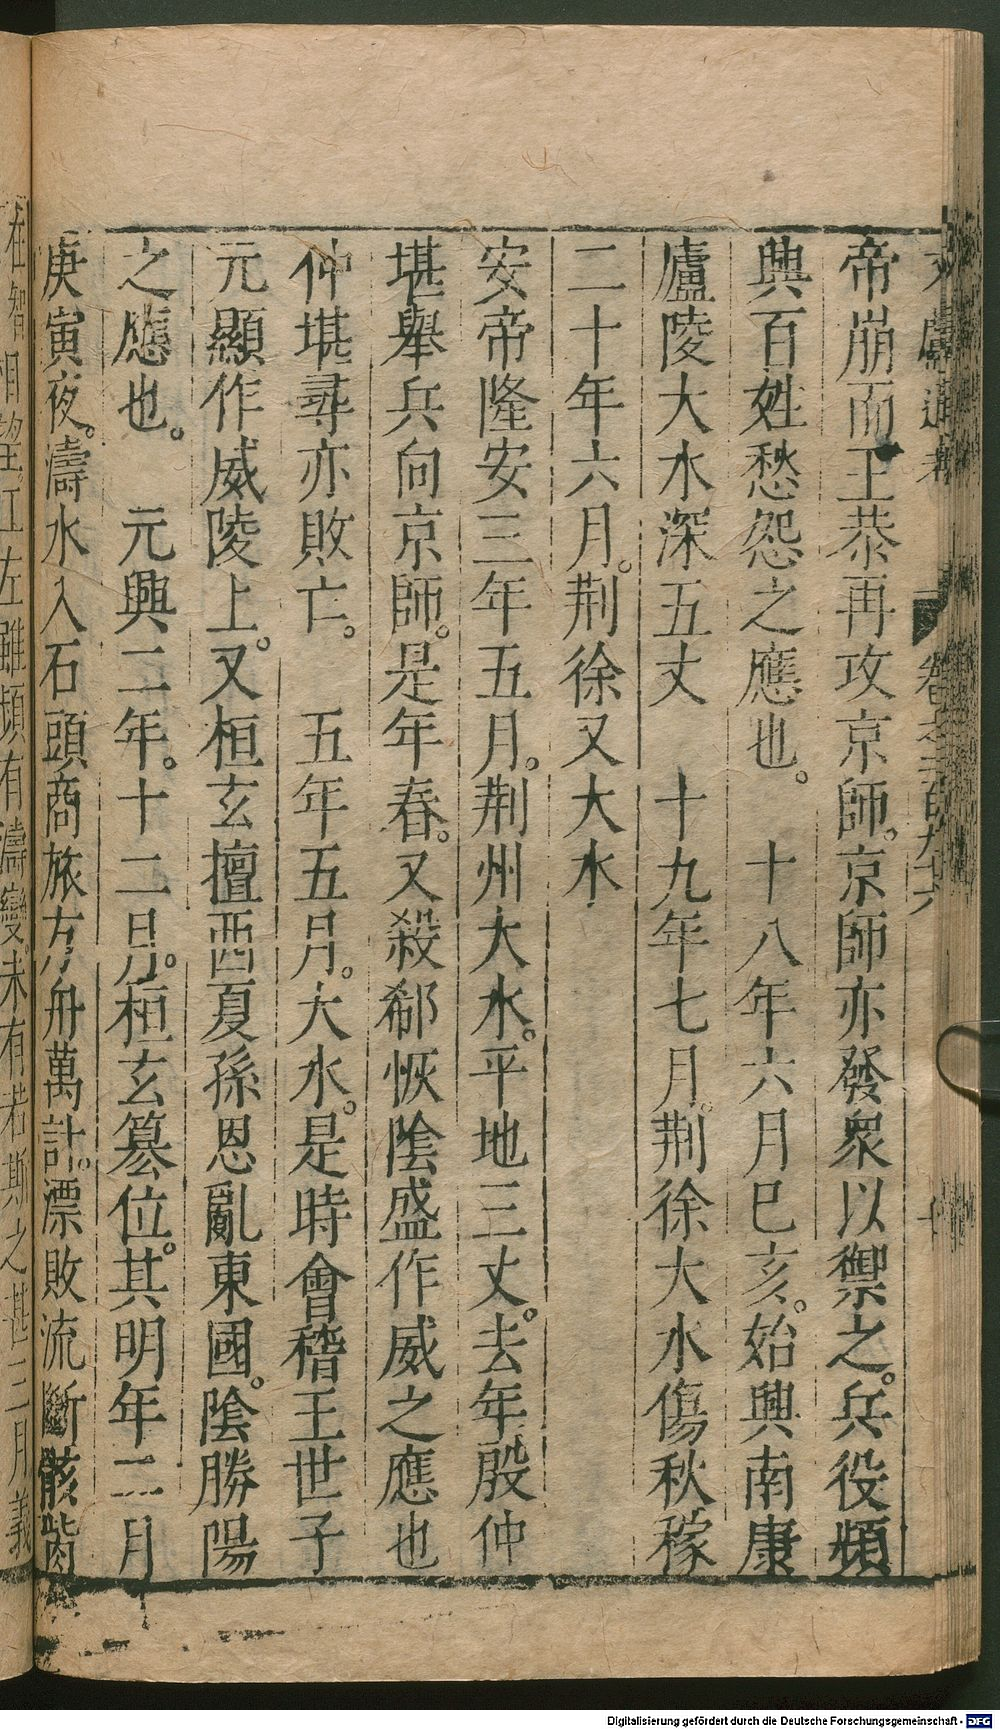 文獻通考 卷之二百九十六
帝崩而王恭再攻京師。京師亦發衆以禦之。兵役頻
興百姓愁怨之應也。 十八年六月巳亥。始興南康
廬陵大水深五丈 十九年七月。荆徐大水傷秋稼
二十年六月。荆徐又大水
安帝隆安三年五月。荆州大水。平地三丈。去年殷仲
堪舉兵向京師。是年春。又殺郗恢陰盛作威之應也
仲堪尋亦敗亡。 五年五月。大水。是時會稽王世子
元顯作威陵上。又桓玄擅西夏孫恩亂東國。陰勝陽
之應也。 元興二年。十二月。桓玄篡位。其明年二月
庚寅夜。濤水入石頭商旅方舟萬計。漂敗流斷骸胔
相望。江左雖頻有濤變。未有若斯之甚三月義
Digitalisierung gefördert durch die Deutsche Forschungsgemeinschaft - DFG